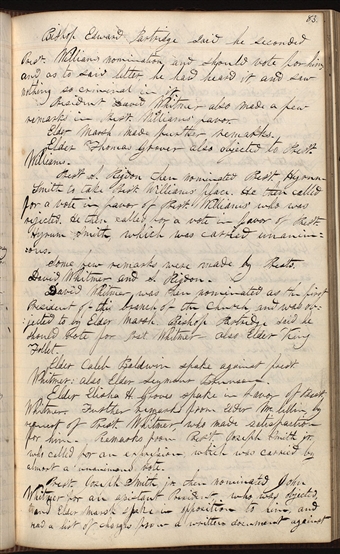 83.
Bishop Edward Partridge said he seconded
Prest. Williams nomination and should vote for him
and as to said letter he had heard it and saw
nothing so criminal in it.
President David Whitmer also made a few
remarks in Prest. Williams favor.
Elder Marsh made further remarks.
Elder Thomas Grover also objected to Prest.
Williams.
Prest S. Rigdon then nominated Prest Hyrum
Smith to take Prest Williams place. He then called
for a vote in favor of Prest Williams who was
rejected. He then called for a vote in favor of Prest.
Hyrum Smith which was carried unanim-
ous.
Some few remarks were made by Prests.
David Whitmer and S. Rigdon.
David Whitmer was then nominated as the first
President of this branch of the Church and was ob-
jected to by Elder Marsh. Bishop Partridge said he
should vote for Prest Whitmer also Elder King
Follet.
Elder Caleb Baldwin spake against prest
Whitmer, also Elder Seymour
Elder Elisha H. Groves spake in favor of Prest.
Whitmer Further remarks from Elder Mc Lellin, by
request of Prest Whitmer, who made satisfaction
for him. Remarks from Prest. Joseph Smith jr.
who called for an expression, which was carried by
almost a unanimous vote.
Prest. Joseph Smith jr then nominated John
Whitmer for an asistant President, who was objected,
and Elder Marsh spake in opposition to him, and
read a list of charges from a written document against